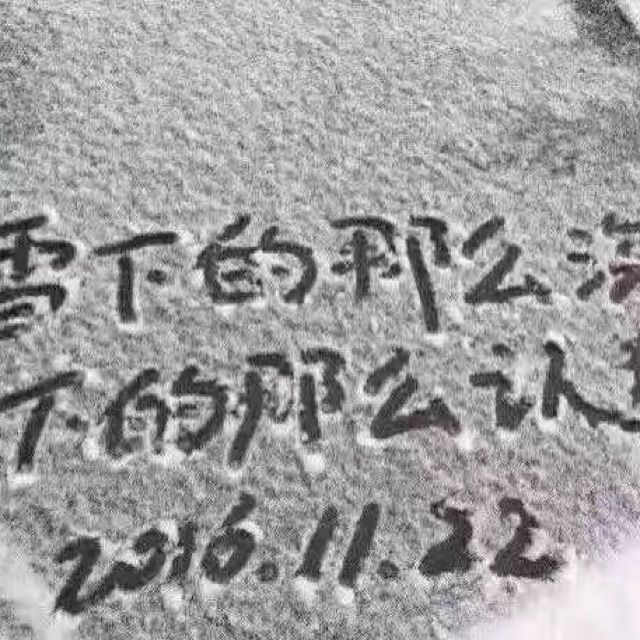 雪下的那么深
下的那么认真
2016.11.22